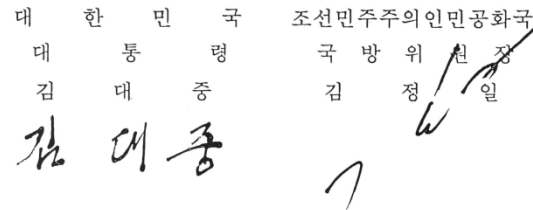 대한민국
대통령
김대중
김대중
조선민주주의인민공화국
국방위원장
김정일